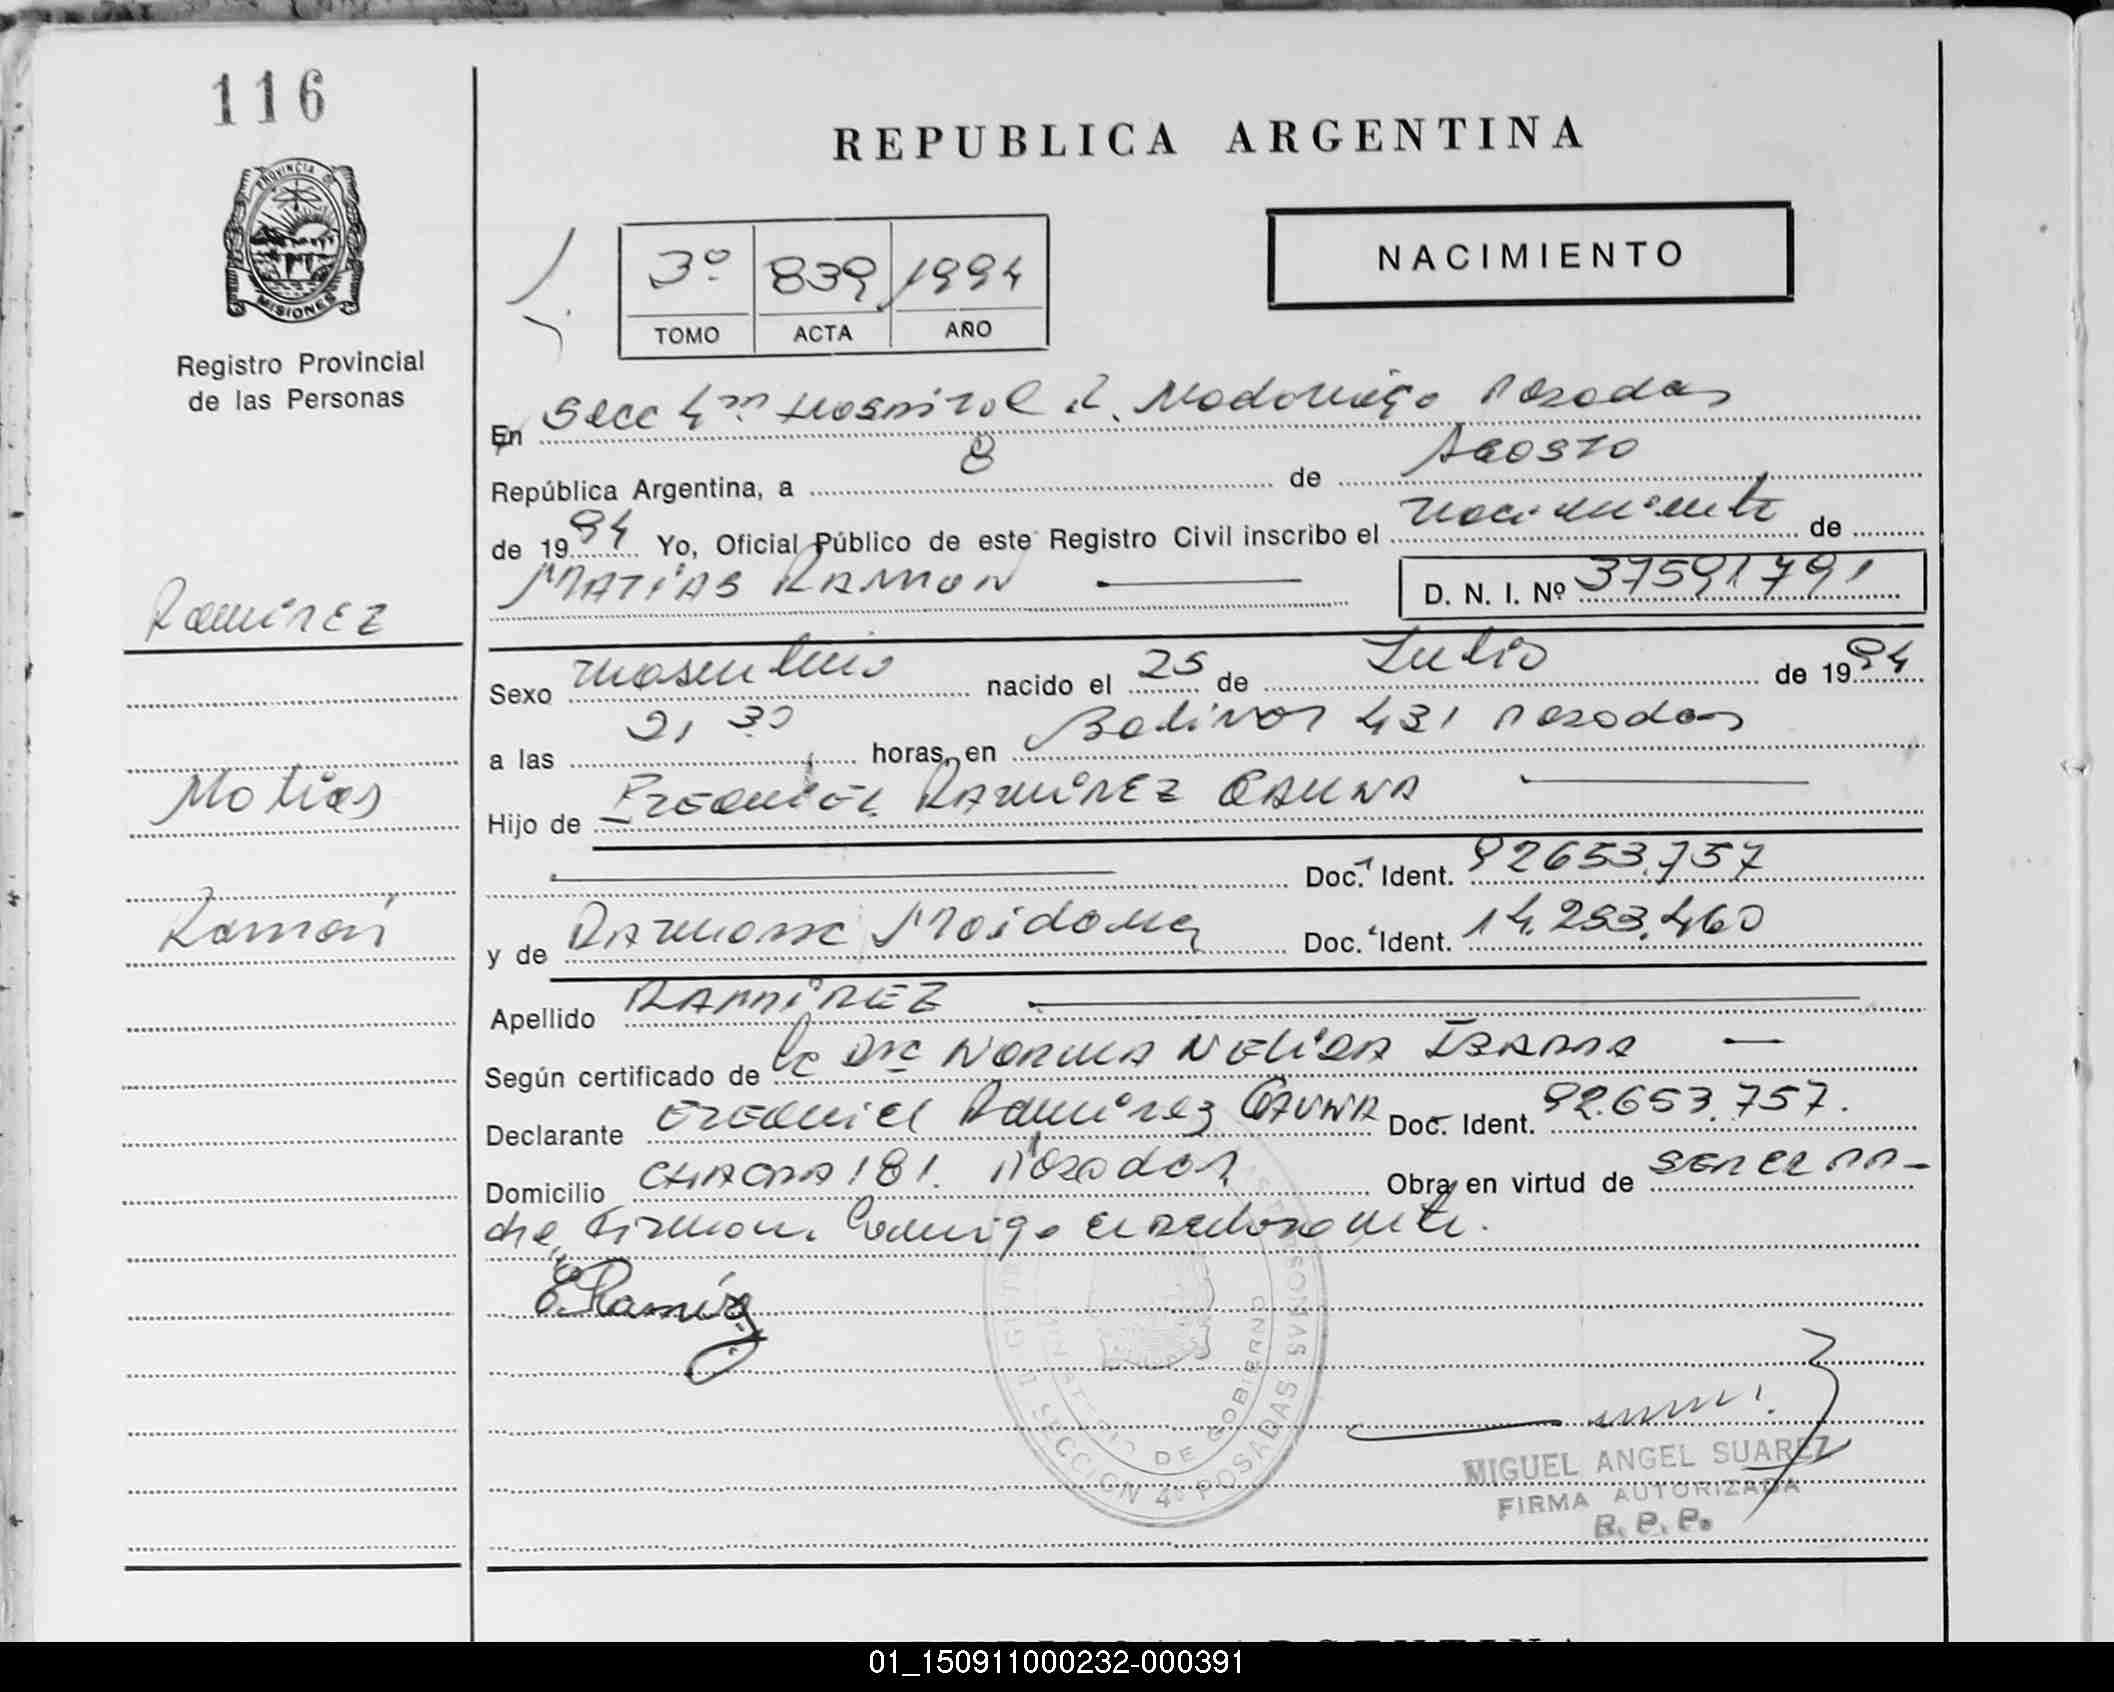 116
PROVINCIA DE
MISIONES
Registro Provincial
de las Personas
REPUBLICA ARGENTINA
3º 839 1994
TOMO ACTA AÑO
NACIMIENTO
En Secc 4ta Hospital R. Madariaga Posadas
República Argentina, a 8 de Agosto
de 1994 Yo, Oficial Público de este Registro Civil inscribo el nacimiento de
MATÍAS RAMON
D. N. I. Nº 37591791
Ramírez
Matías
Ramón
Sexo masculino nacido el 25 de Julio de 1994
a las 21 30 horas, en Bolivar 431 Posadas
Hijo de EZEQUIEL RAMIREZ GAUNA
Doc. Ident. 92653.757
y de Doc. Ident. 14.293.460
Apellido RAMÍREZ
Según certificado de la Dra NORMA NELIDA IBARRA
Declarante EZEQUIEL Ramírez GAUNA Doc. Ident. 92.653.757.
Domicilio CHACRA 181. Posadas Obra en virtud de SER EL PA-
dre, Firman Conmigo el declarante.
E. Ramírez
SECCION 4º POSADAS
MINISTERIO DE GOBIERNO
MIGUEL ANGEL SUAREZ
FIRMA AUTORIZADA
R. P. P.
01_150911000232-000391